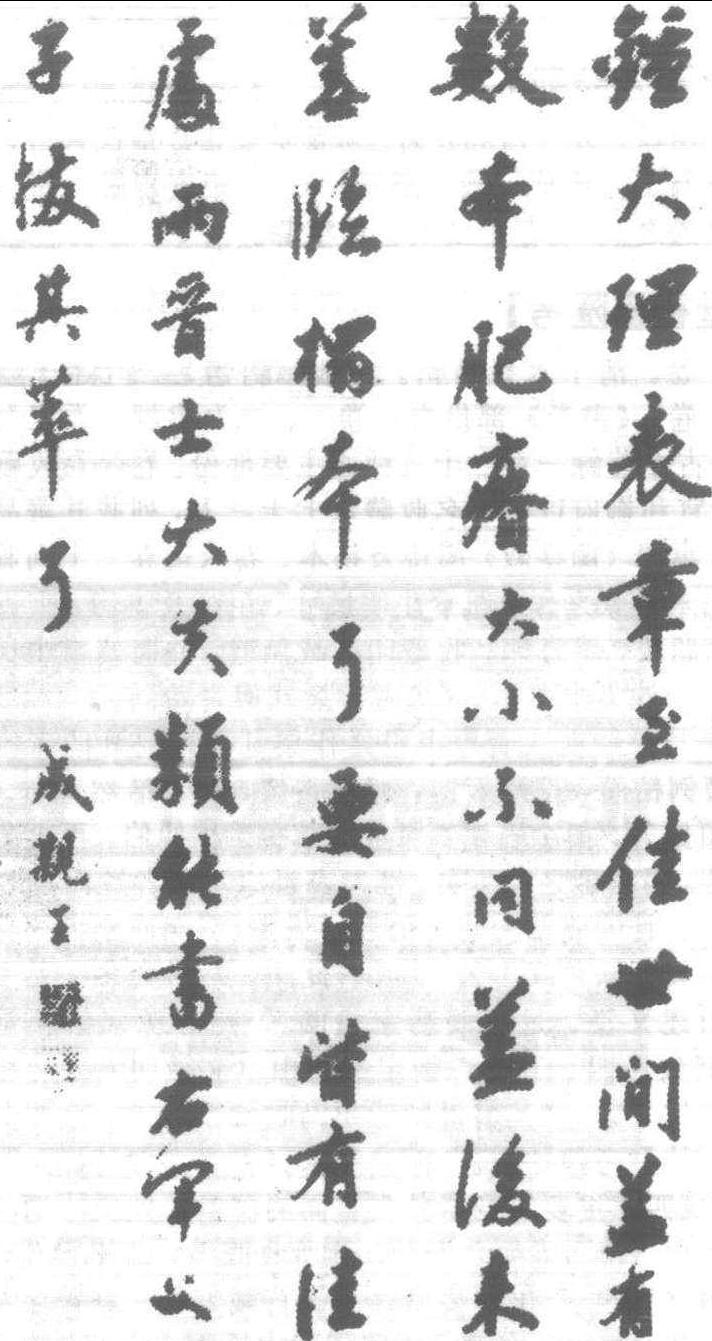 鍾大理表章至佳世間蓋有
數本肥瘠大小不同蓋後来
善臨搨本耳要自皆有佳
處兩晉士大夫類能書右軍父
子拔其萃耳
成親王